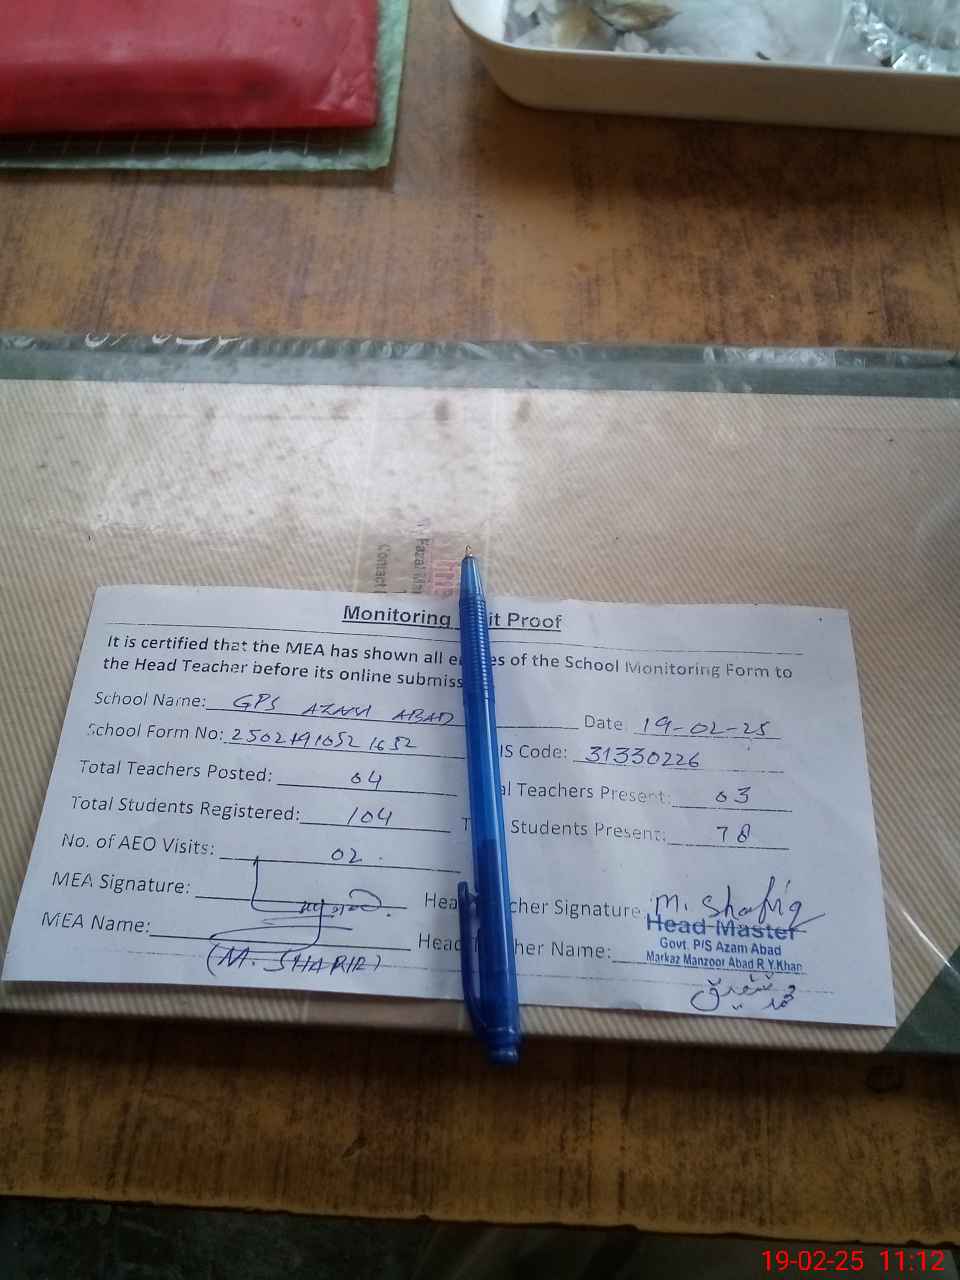 Monitoring it Proof
It is certified that the MEA has shown all e es of the School Monitoring Form to
the Head Teacher before its online submiss
School Name: GPS AZAM ABAD Date: 19-02-25
School Form No: IS Code: 31330226
Total Teachers Posted: 04 al Teachers Present: 03
Total Students Registered: 104 T Students Present: 78
No. of AEO Visits: 02
MEA Signature: Hea cher Signature: M. Shafiq
MEA Name: Head T her Name:
(M. SHABIR)
Head Master
Govt. P/S Azam Abad
Markaz Manzoor Abad R.Y.Khan
محمد شفیق
19-02-25 11:12